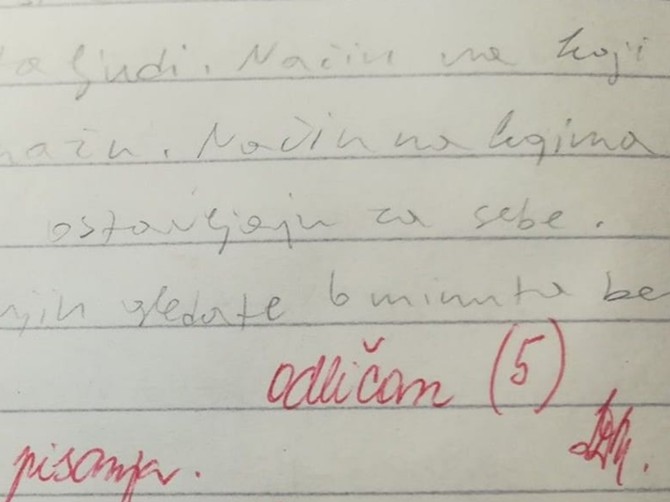 ljudi. Način na koji
način. Način na kojima
ostavljaju za sebe.
gledate 6 minuta be
odličan (5)
pisanja.